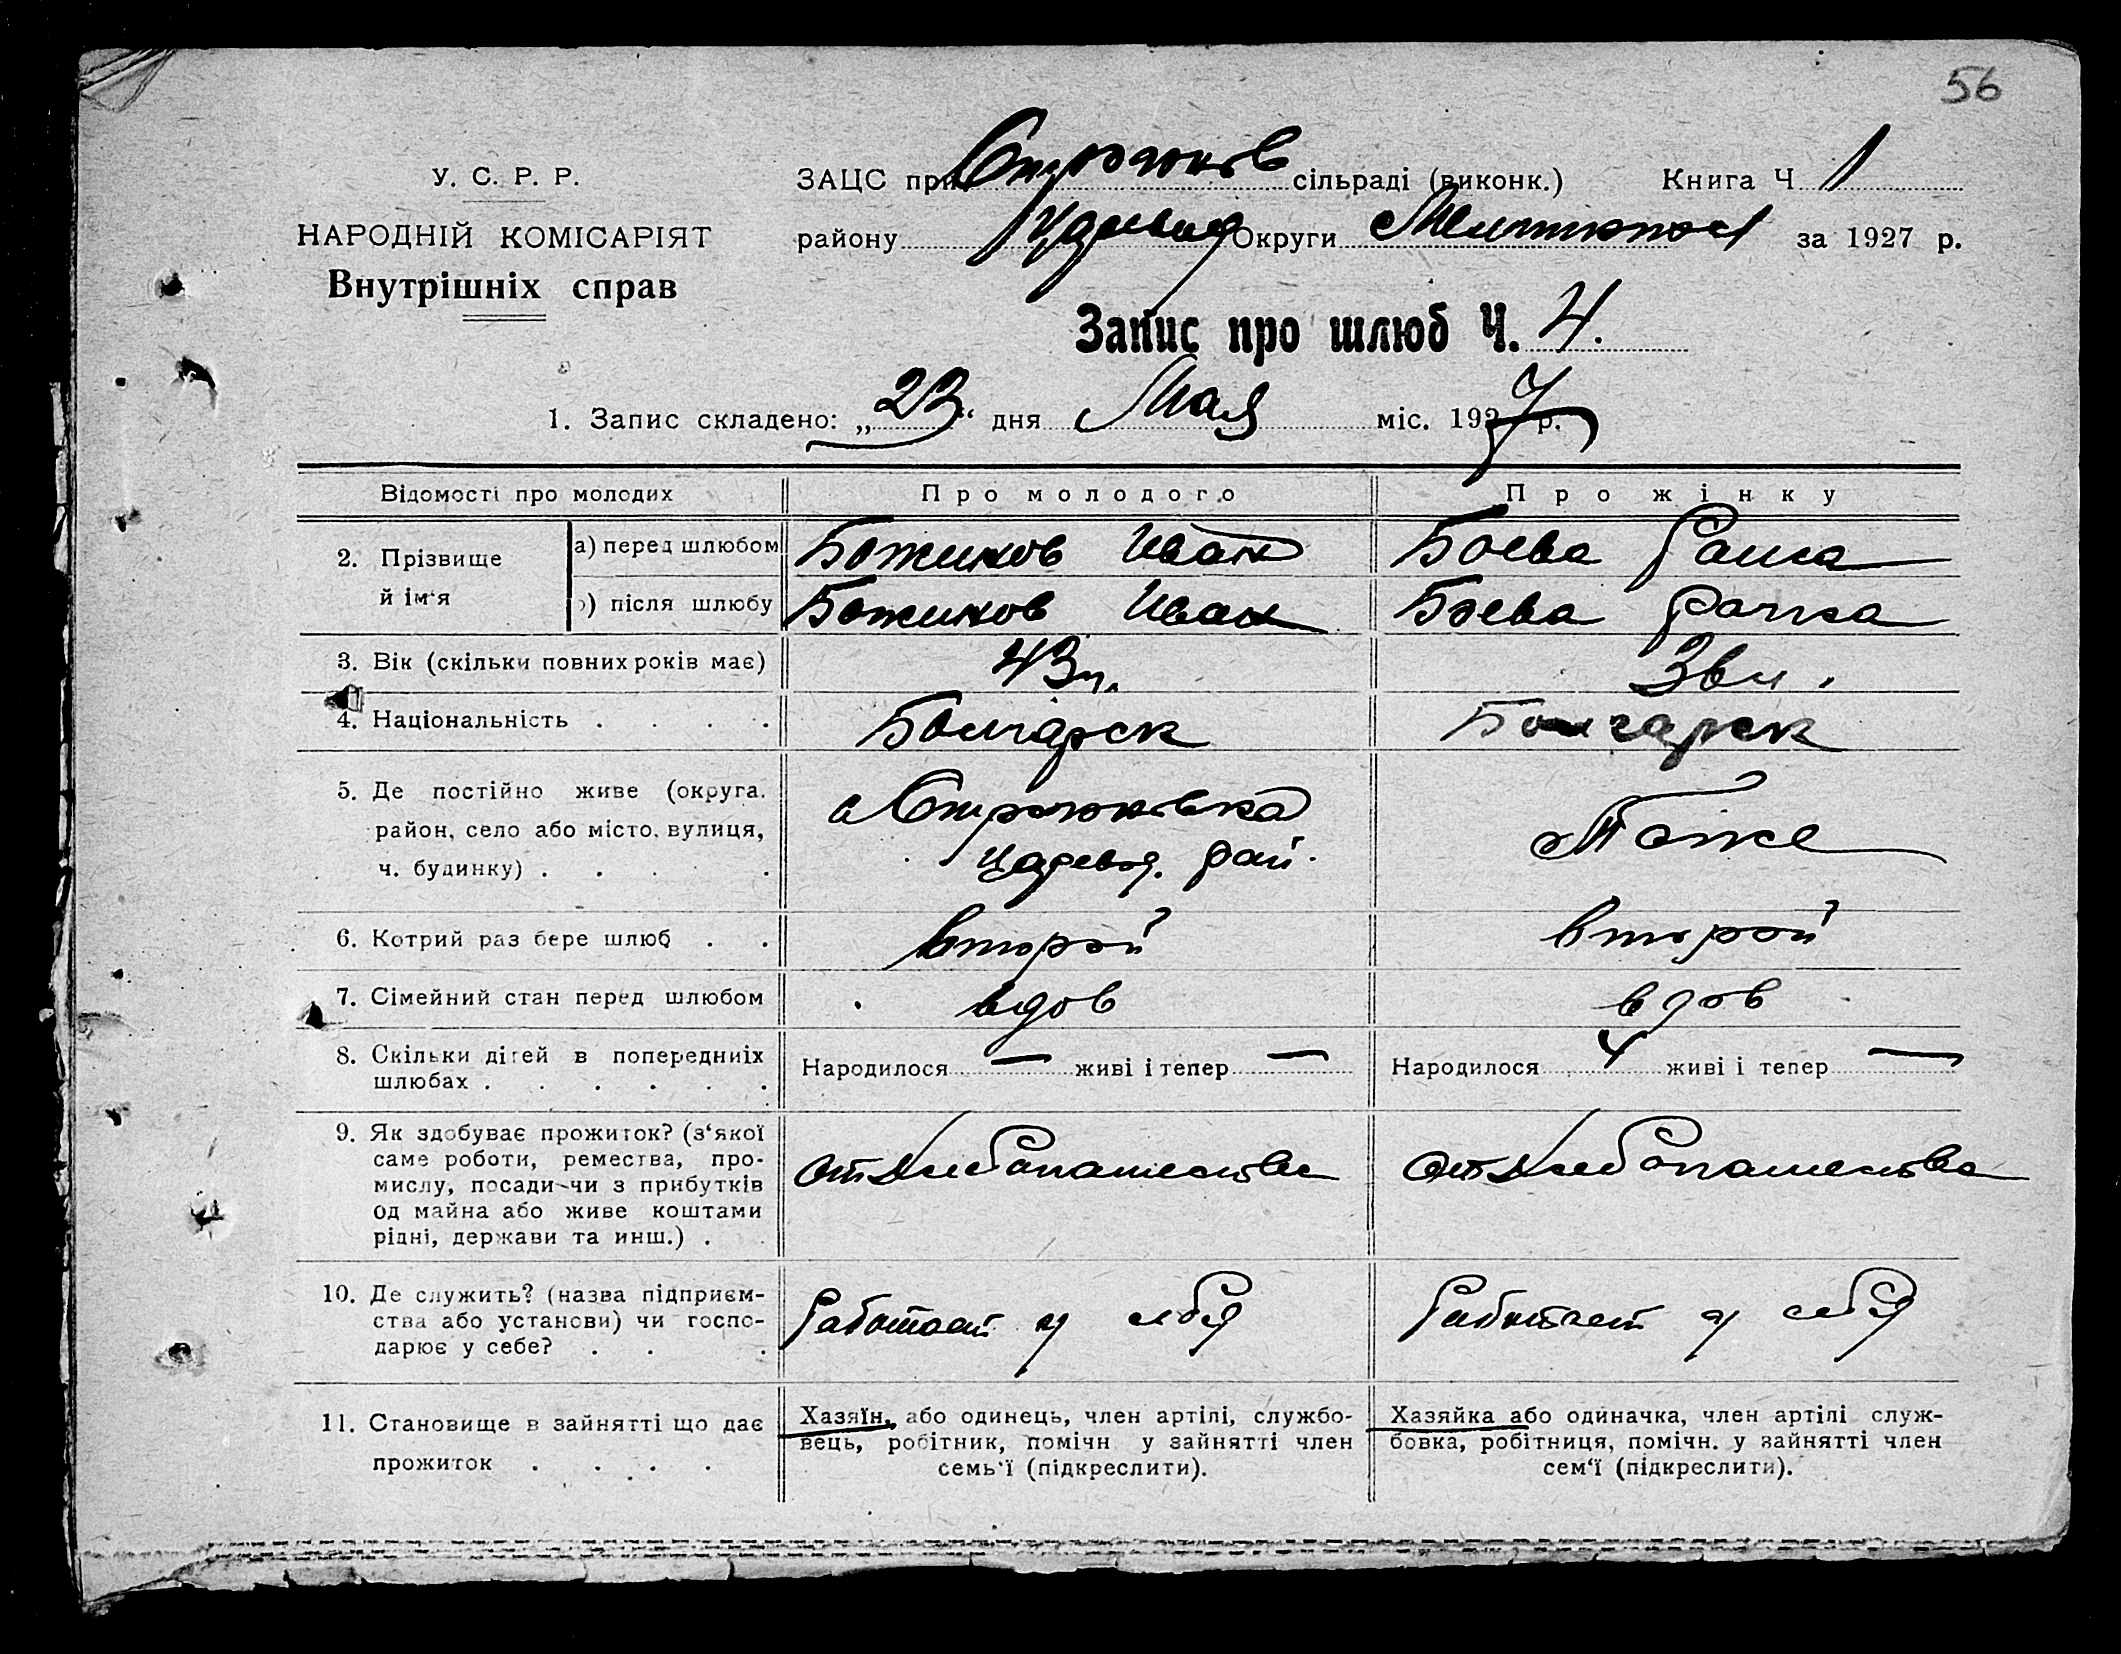 56
У. С. Р. Р.
НАРОДНІЙ КОМІСАРІЯТ
Внутрішніх справ
ЗАЦС при сільраді (виконк.) Книга Ч 1
району Округи Мелитопол за 1927 р.
Запис про шлюб Ч. 4.
1. Запис складено: „23“ дня Мая міс. 1927 р.
Відомості про молодих Про молодого Про жінку
2. Прізвище й ім‘я а) перед шлюбом Божиков Иван Боева Раиса
) після шлюбу Божиков Иван Боева
3. Вік (скільки повних років має) 43
4. Національність . . . . Болгарск Болгарск
5. Де постійно живе (округа,
район, село або місто, вулиця,
ч. будинку) . . . .
Царевод. рай. Тоже
6. Котрий раз бере шлюб . . второй второй
7. Сімейний стан перед шлюбом вдов вдов
8. Скільки дітей в попередниіх
шлюбах . . . . . .
Народилося — живі і тепер — Народилося 4 живі і тепер —
9. Як здобуває прожиток? (з‘якої
саме роботи, ремества, про-
мислу, посади чи з прибутків
од майна або живе коштами
рідні, держави та инш.) .
от хлебопашества от хлебопашества
10. Де служить? (назва підприєм-
ства або установи) чи госпо-
дарює у себе? . . .
Работает у себя Работает у себя
11. Становище в зайнятті що дає
прожиток . . . . .
Хазяїн, або одинець, член артілі, службо-
вець, робітник, помічн у зайнятті член
семь‘ї (підкреслити).
Хазяйка або одиначка, член артілі служ-
бовка, робітниця, помічн. у зайнятті член
сем‘ї (підкреслити).